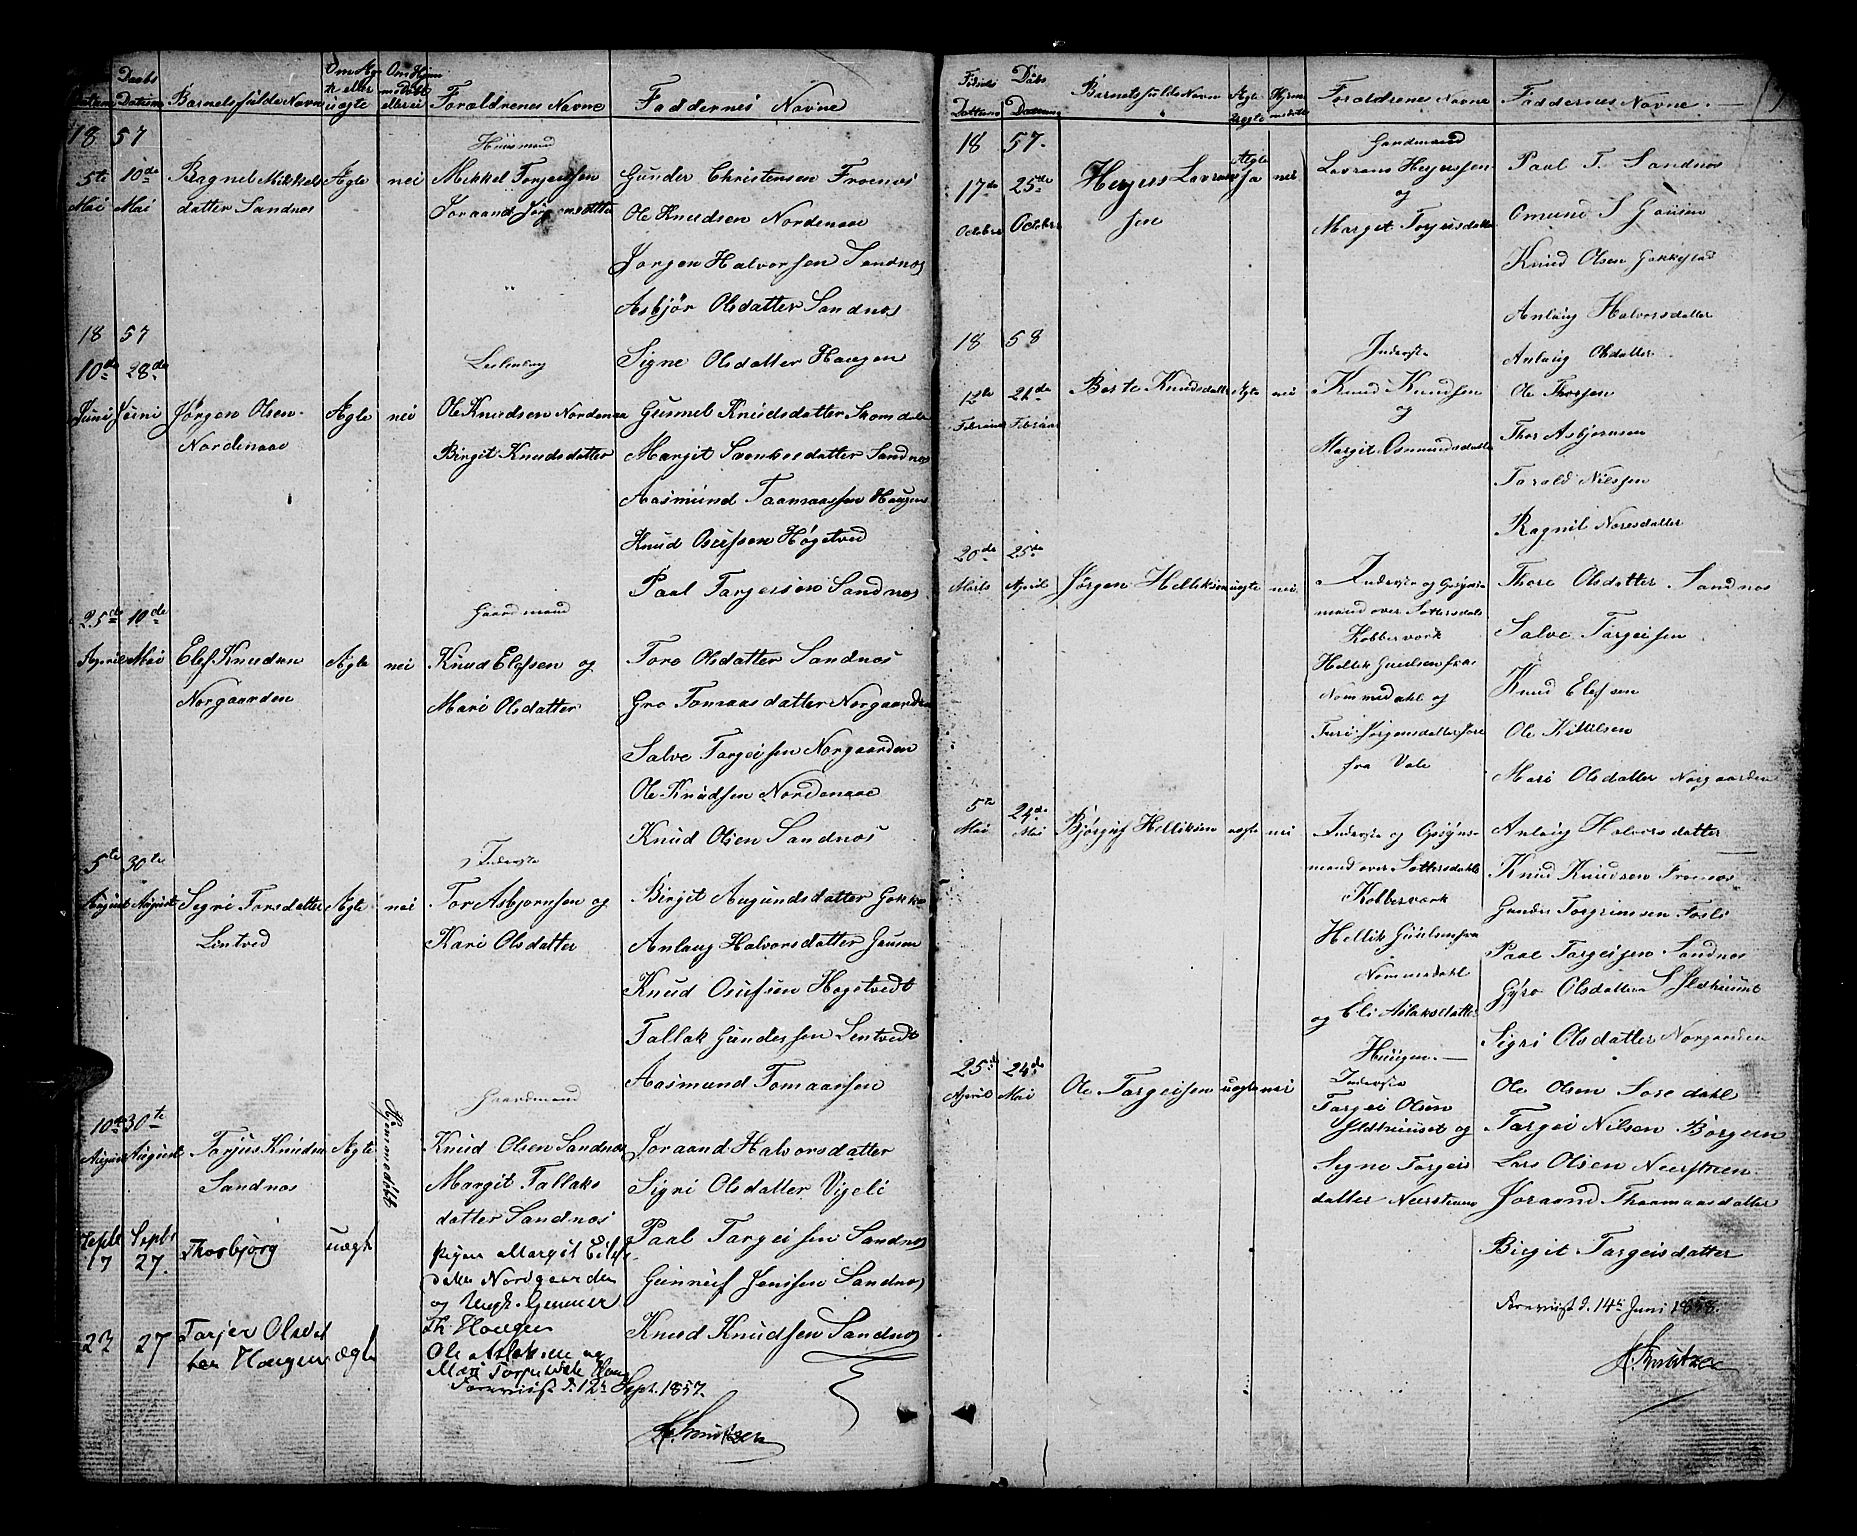 Daabs Datum
Barnets fulde Navn
Om Ægte eller uægte
Om Hjemmedøbt eller ei
Forældrenes Navne
Faddernes Navne
18 57
Huusmand
5te Mai
10de Mai
Ragnel Mikkels
datter Sandnæs
Ægte
nei
Mikkel Torjensen
Joraand Jørgensdatter
Gunder Christensen Froenæs
Ole Knudsen Nordenaae
Jørgen Halvorsen Sandnæs
Asbjør Olsdatter Sandnæs
18 57
Signe Olsdatter Haugen
10de Juni
28de Juni
Leilending
Jørgen Olsen
Nordenaae
Ægte
nei
Ole Knudsen Nordenaa
Birgit Knudsdatter
Gunnel Knudsdatter Skomdal
Margit Saankesdatter Sandnæs
Aasmund Taamaassen Haugen
Knud Osufsen Høgetved
Paal Targersen Sandnæs
25de April
10de Mai
Gaardmand
Elef Knudsen
Norgaarden
Ægte
nei
Knud Elefsen og
Mari Olsdatter
Toro Olsdatter Sandnæs
Gro Tomaasdatter Norgaarden
Salve Targeisen Norgaarden
Ole Knudsen Nordenaae
Knud Olsen Sandnæs
5te August
30te August
Inderste
Segri Torsdatter
Lentved
Ægte
nei
Tor Asbjornsen og
Kari Olsdatter
Birgit Augundsdatter Gakke
Anlaug Halvorsdatter Jeusen
Knud Osufsen Hogetvedt
Tallak Gundersen Lentvedt
Aasmund Tomaassen
10de August
30te August
Gaardmand
Torjus Knudsen
Sandnæs
Ægte
Hjemmedøbt
Knud Olsen Sandnæs
Margit Tallaks
datter Sandnæs
Joraand Halvorsdatter
Sigri Olsdatter Vigeli
Paal Targeisen Sandnæs
Gunneuf Jonsen Sandnæs
Knud Knudsen Sandnæs
Septbr 17
Septbr 27.
Thorbjørg
uægte
Pigen Margit Eilefs
datter Nordgaarden
og Ungk. Gunner
Th. Haugen
23
27
Torjer Olsdat
ter Haugen
ægte
Ole Aslaksen og
Foreviist d. 12te Sept. 1857.
Fødsels Dattum
Døbs Dattum
Barnets fulde Navn
Ægte Uægte
Forældrenes Navne
Faddernes Navne.
18 57.
Gardmand
17de October
25de October
Herjus Lavrans
sen
Ægte
Ja
nei
Lavrans Herjussen
og
Margit Torjusdatter
Paal T. Sandnæs
Omund S Jousen
Knud Olsen Gakkestad
Anlaug Halvorsdatter
Anlaug Olsdatter
18 58
Inderste
12te Februar
21de Februar
Berte Knudsdatter
Ægte
nei
Knud Knudsen
og
Margit Osmundsdatter
Ole Thorsen
Thor Asbjornsen
Tarald Nilssen
Ragnil Noresdatter
20de Marts
25de April
Jørgen Helliksen
uægte
nei
Inderste og Opsyns
mand over Sættersdals
Kobberværk
Hellik Guulsen fra
Nommedahl og
Turi Jørgensdatter Jore
fra Vale
Thore Olsdatter Sandnæs
Salve Targeisen
Knud Elefsen
Ole Kittelsen
Mari Olsdatter Norgaarden
5te Mai
24de Mai
Bjørguf Helliksen
uegte
nei
Inderste og Opsÿns-
mand over Sættersdals
Kobberværk
Hellik Guulsen fra
Nommedahl
og Eli Aslaksdatter
Haugen.
Anlaug Halvorsdatter
Knud Knudsen Froenæs
Gunder Torgrimsen Fosli
Paal Targeisen Sandnæs
Gyro Olsdatter Sjeldhuust
Sigri Olsdatter Norgaarden
25de April
24de Mai
Ole Targeisen
uægte
nei
Inderste
Targei Olsen
Sjeldhuuset og
Segne Targeis
datter Neersteen
Ole Olsen Soredahl
Targei Nilsen Børgeen
Lars Olsen Neersteen
Joraand Thaamaasdatter
Birgit Targeisdatter
Foreviist d. 14de Juni 1858.